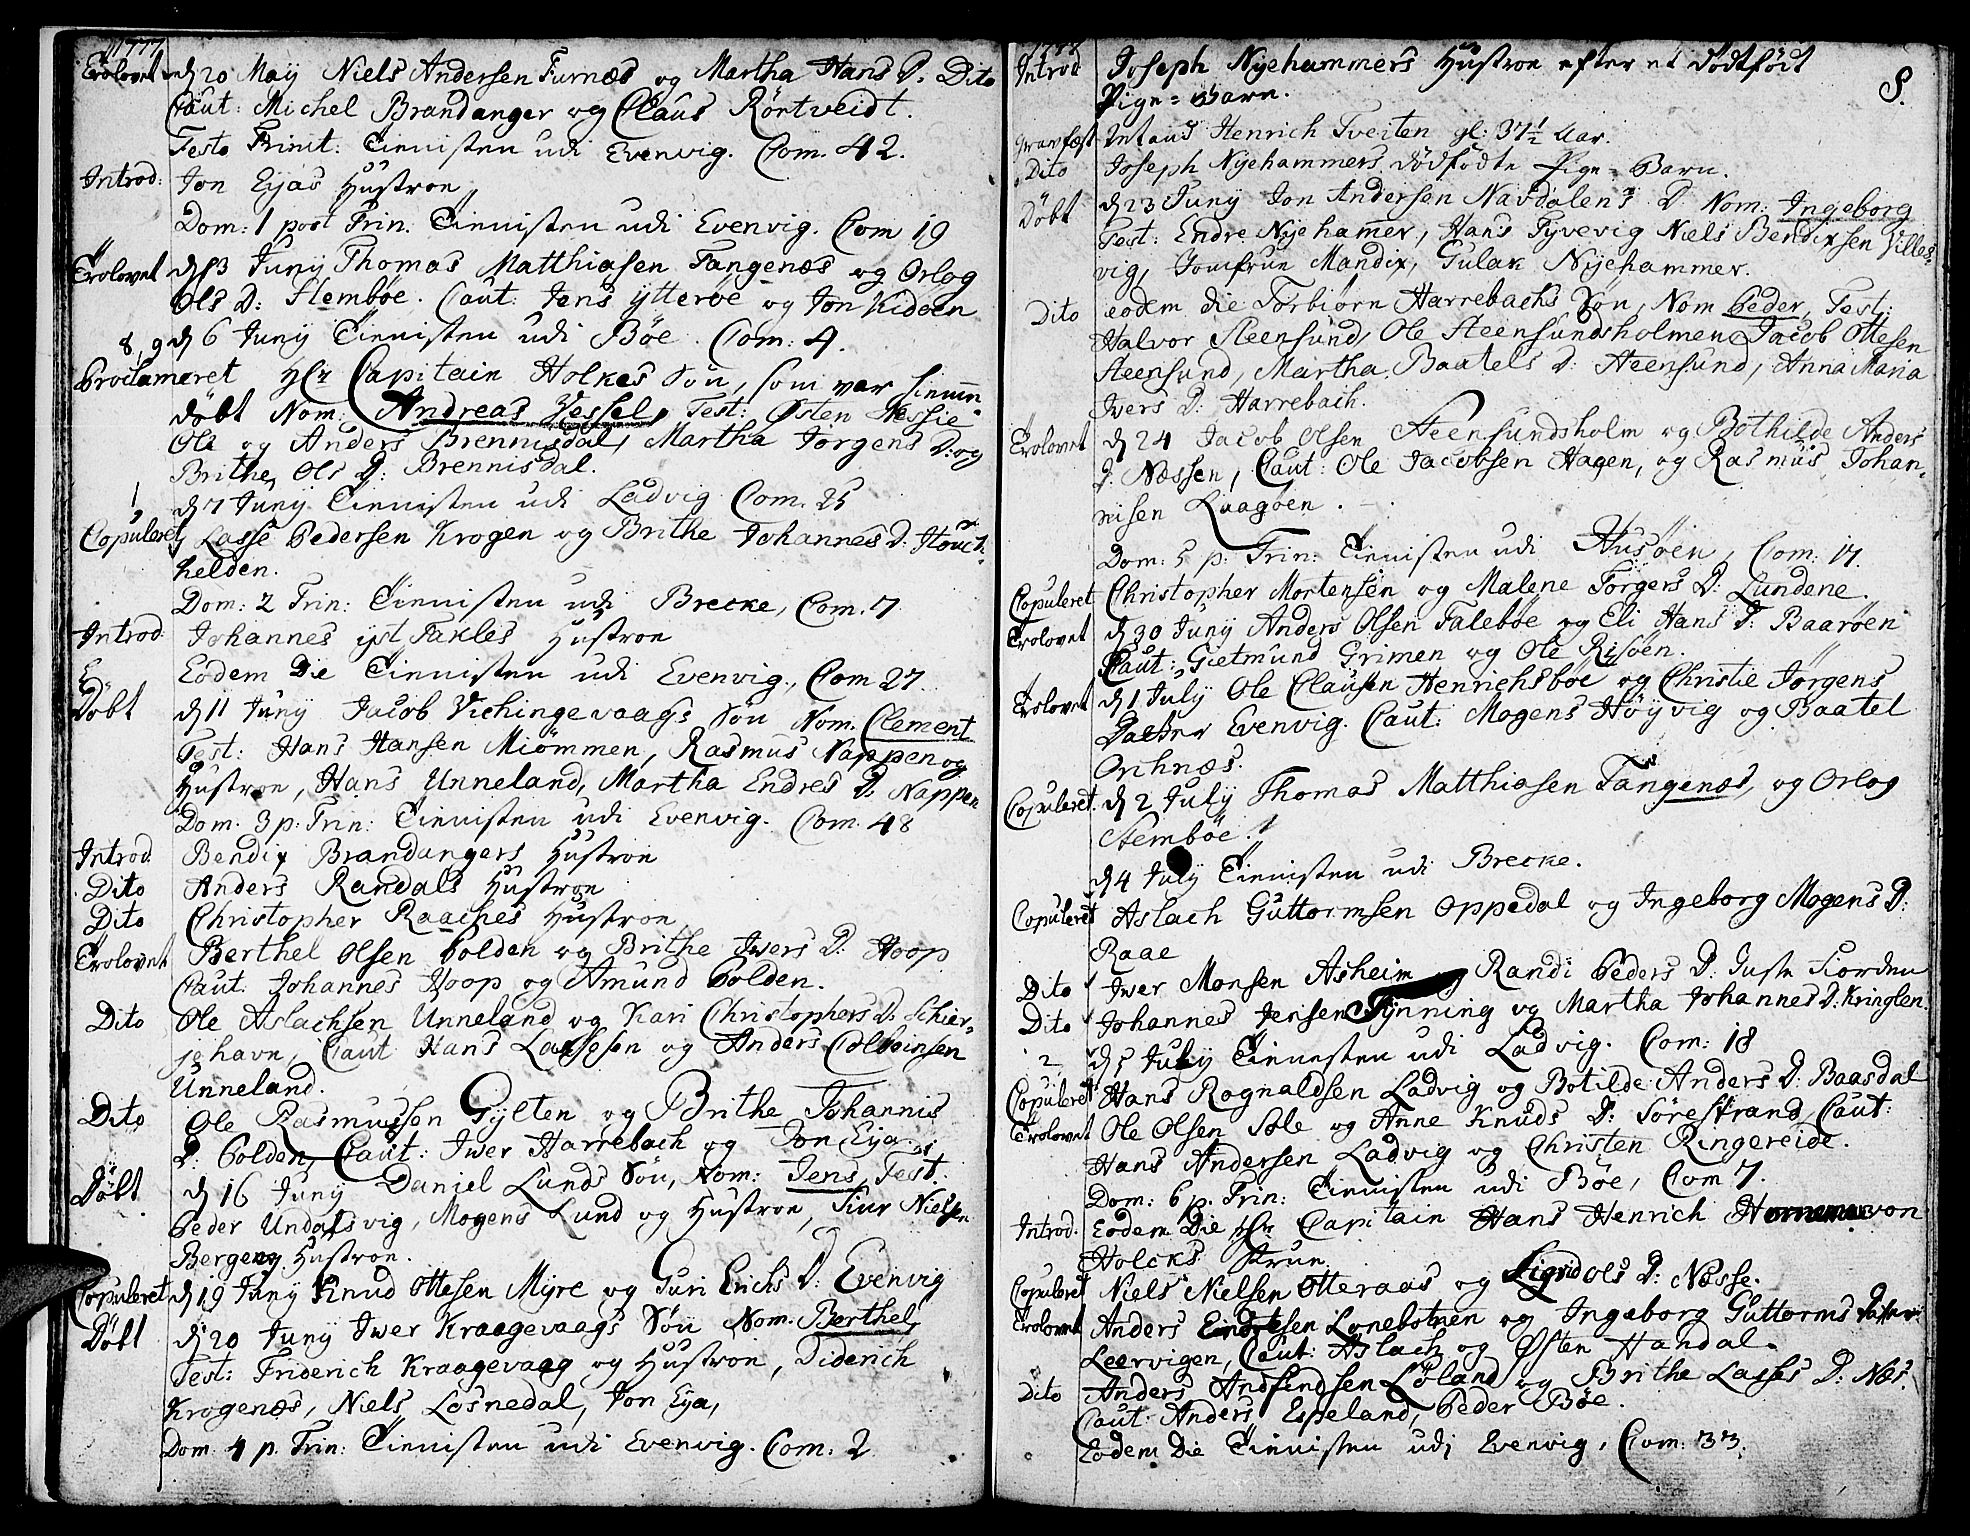 Trolovet d 20 Maÿ Niels Andersen Furnæs og Martha Hans D. Dito
Caut: Michel Brandanger og Claus Röntveidt.
Festo Trinit: Tienisten udi Evenvig. Com. 42.
Introd: Jon Eÿas Hustroe
Dom: 1 post Trin. Tienisten udi Evenvig. Com 19
Trolovet d 3 Junÿ Thomas Matthiasen Tangenæs og Orlog
Ols D: Stembøe. Caut: Jens ÿtterøe og Jon Kidøen
8, 9 d 6 Junÿ Tienisten udi Bøe. Com: 4.
Proclameret Hr Capitain Holkes Søn, som var hiemme
døbt Nom: Andreas Vessel, Test: Østen Nessie
Ole og Anders Brennisdal, Martha Jørgens D: og
Brithe Ols D: Brennisdal.
1, d 7 Junÿ Tienisten udi Ladvig Com. 25
Copuleret Lasse Pedersen Krogen og Brithe Johannes D:
helden.
Dom: 2 Trin: Tienisten udi Brecke, Com. 7
Introd Johannes ÿst Takles Hustroe
Eodem Die Tienisten udi Evenvig, Com 27
Døbt d 11 Junÿ Jacob Vichingevaags Søn Nom. Clement
Test: Hans Hansen Miömmen, Rasmus Nappen og
Hustroe, Hans Unneland, Martha Endres D. Nappen
Dom. 3 p: Trin: Tienisten udi Evenvig. Com. 48
Introd Bendix Brandangers Hustroe
Dito Anders Randals Hustroe
Dito Christopher Raaches Hustroe
Trolovet Berthel Olsen Polden og Brithe Iwers D: Hoop
Caut. Johannes Hoop og Amund Polden.
Dito Ole Aslachsen Unneland og Kari Christophers D: Schier-
jehavn, Caut Hans Lassesen og Anders Colbeinsen
Unneland.
Dito Ole Rasmussøn Gÿlten og Brithe Johannis
D: Polden, Caut: Iwer Harrebach og Jon Eÿa
Døbt d 16 Junÿ Daniel Lunds Søn, Nom: Jens, Test.
Peder Undalsvig, Mogens Lund og Hustroe, Siur Nielsen
Bergens Hustroe.
Copuleret d 19 Junÿ Knud Ottesen Mÿre og Turi Erichs D: Evenvig
Døbt d 20 Junÿ Iwer Kraagevaags Søn Nom. Berthel,
Test: Friderich Kraagevaag og Hustroe, Diderich
Krogenæs, Niels Losnedal, Jon Eÿa,
Dom: 4 p. Trin: Tienisten udi Evenvig. Com: 2
8.
Introd Joseph Nÿehammers Hustroe efter et dødtfødt
Pige=Barn.
Gravfæst Henrich Tveiten gl: 37½ Aar.
Dito Joseph Nÿehammers dødfødte Pige=Barn.
Døbt d 23 Junÿ Jon Andersen Navdalens D. Nom: Ingeborg
Test: Endre Nÿehamer, Hans Tÿvevig Niels Bendixsen Villes-
vig, Jomfrue Mandix, Gulak Nÿehammer.
Dito eodem die Torbiørn Harrebachs Søn, Nom Peder, Test:
Halvor Steensund, Ole Steensundsholmen, Jacob Ottesen
Steensund, Martha Baatels D: Steensund, Anna Maria
Iwers D: Harrebach.
Trolovet d 24 Jacob Olsen Steensundsholm og Bothilde Anders
D: Næssen, Caut: Ole Jacobsen Hagen, og Rasmus Johan-
nisen Kraagøen.
Dom: 5 p: Trin: Tienisten udi Husøen, Com: 17.
Copuleret Christopher Mortensen og Malene Torgers D: Lundene.
Trolovet d 30 Junÿ Anders Olsen Talebøe og Eli Hans D: Baarøen
Caut: Gietmund Grimen og Ole Risøen.
Trolovet d 1 Julÿ Ole Clausen Henrichsbøe og Christie Jørgens
Datter Evenvig. Caut: Mogens Høÿvig og Baatel
Orihnæs.
Copuleret d 2 Julÿ Thomas Matthiasen Tangenæs, og Orlog
Stembøe.
d 4 Julÿ Tienisten udi Brecke.
Copuleret Aslach Guttormsen Oppedal og Ingeborg Mogens D:
Raae
Dito Iwer Monsen Asheim og Randi Peders D: Fiorden
Dito Johannes Jensen Tÿnning og Martha Johannes D: Kringlen
2 d 5 Julÿ Tienisten udi Ladvig. Com: 18
Copuleret Hans Rognaldsen Ladvig og Botilde Anders D: Baasdal
Trolovet Ole Olsen Sole og Anne Knuds D: Sørestrand, Caut:
Hans Andersen Ladvig og Christen Ringereide.
Dom: 6 p. Trin: Tienisten udi Bøe, Com 7.
Introd. Eodem Die Hr Capitain Hans Henrich von
Holcks Frue
Copuleret Niels Nielsen Otteraas og Sigrid Ols D: Næsse.
Trolovet Anders Lonebotnen og Ingeborg Guttorms
Leervigen, Caut: Aslach og Østen Handal.
Dito Anders Løland og Brithe Lasses D: Næs.
Caut: Anders Espeland, Peder Bøe.
Eodem Die Tienisten udi Evenvig, Com: 33.